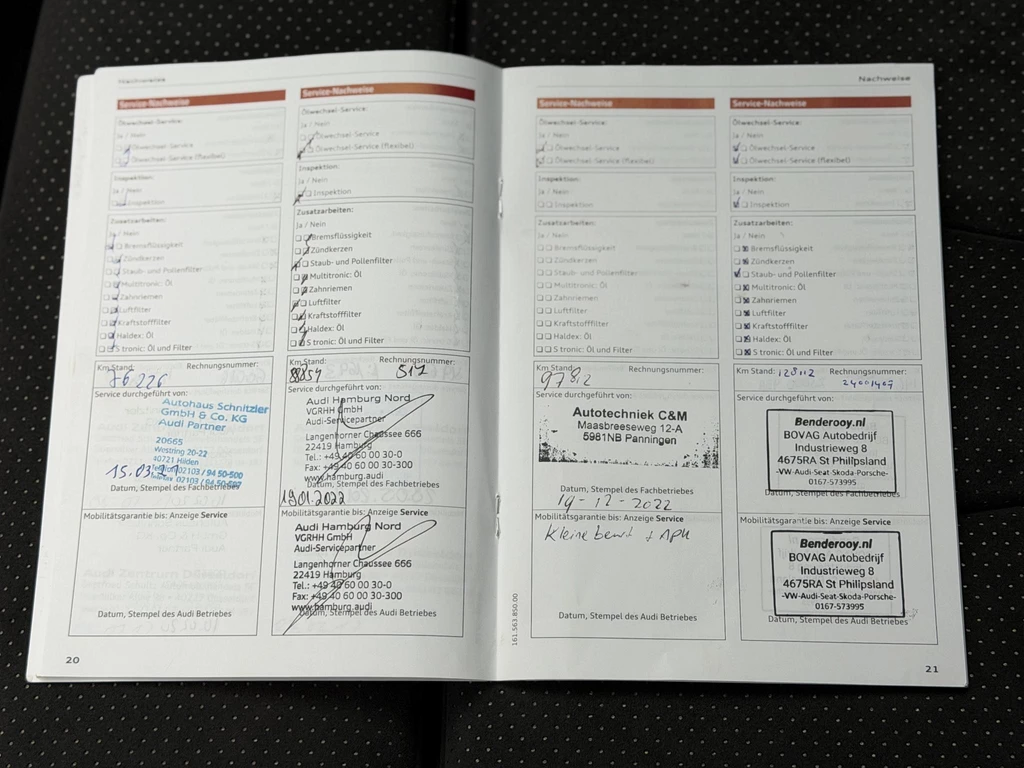 Nachweise
Service-Nachweise
Ölwechsel-Service:
Ja / Nein
Ölwechsel-Service
Ölwechsel-Service (flexibel)
Inspektion:
Ja / Nein
Inspektion
Zusatzarbeiten:
Ja / Nein
Bremsflüssigkeit
Zündkerzen
Staub- und Pollenfilter
Multitronic: Öl
Zahnriemen
Luftfilter
Kraftstofffilter
Haldex: Öl
S tronic: Öl und Filter
Km Stand:
Rechnungsnummer:
76 226
Service durchgeführt von:
Autohaus Schnitzler
GmbH & Co. KG
Audi Partner
20665
Westring 20-22
40721 Hilden
Telefon 02103 / 94 50-500
Telefax 02103 / 94 50-597
15.03.21
Datum, Stempel des Fachbetriebes
Mobilitätsgarantie bis: Anzeige Service
Datum, Stempel des Audi Betriebes
20
Service-Nachweise
Ölwechsel-Service:
Ja / Nein
Ölwechsel-Service
Ölwechsel-Service (flexibel)
Inspektion:
Ja / Nein
Inspektion
Zusatzarbeiten:
Ja / Nein
Bremsflüssigkeit
Zündkerzen
Staub- und Pollenfilter
Multitronic: Öl
Zahnriemen
Luftfilter
Kraftstofffilter
Haldex: Öl
S tronic: Öl und Filter
Km Stand:
Rechnungsnummer:
88854
517
Service durchgeführt von:
Audi Hamburg Nord
VGRHH GmbH
Audi-Servicepartner
Langenhorner Chaussee 666
22419 Hamburg
Tel.: +49 40 60 00 30-0
Fax: +49 40 60 00 30-300
www.hamburg.audi
Datum, Stempel des Fachbetriebes
19.01.2022
Mobilitätsgarantie bis: Anzeige Service
Audi Hamburg Nord
VGRHH GmbH
Audi-Servicepartner
Langenhorner Chaussee 666
22419 Hamburg
Tel.: +49 40 60 00 30-0
Fax: +49 40 60 00 30-300
www.hamburg.audi
Datum, Stempel des Audi Betriebes
Service-Nachweise
Ölwechsel-Service:
Ja / Nein
Ölwechsel-Service
Ölwechsel-Service (flexibel)
Inspektion:
Ja / Nein
Inspektion
Zusatzarbeiten:
Ja / Nein
Bremsflüssigkeit
Zündkerzen
Staub- und Pollenfilter
Multitronic: Öl
Zahnriemen
Luftfilter
Kraftstofffilter
Haldex: Öl
S tronic: Öl und Filter
Km Stand:
Rechnungsnummer:
97812
Service durchgeführt von:
Autotechniek C&M
Maasbreeseweg 12-A
5981NB Panningen
Datum, Stempel des Fachbetriebes
19-12-2022
Mobilitätsgarantie bis: Anzeige Service
Kleine beurt + APK
Datum, Stempel des Audi Betriebes
161.563.850.00
Nachweise
Service-Nachweise
Ölwechsel-Service:
Ja / Nein
Ölwechsel-Service
Ölwechsel-Service (flexibel)
Inspektion:
Ja / Nein
Inspektion
Zusatzarbeiten:
Ja / Nein
Bremsflüssigkeit
Zündkerzen
Staub- und Pollenfilter
Multitronic: Öl
Zahnriemen
Luftfilter
Kraftstofffilter
Haldex: Öl
S tronic: Öl und Filter
Km Stand: 128112
Rechnungsnummer:
24001407
Service durchgeführt von:
Benderooy.nl
BOVAG Autobedrijf
Industrieweg 8
4675RA St Philipsland
-VW-Audi-Seat-Skoda-Porsche-
0167-573995
Datum, Stempel des Fachbetriebes
Mobilitätsgarantie bis: Anzeige Service
Benderooy.nl
BOVAG Autobedrijf
Industrieweg 8
4675RA St Philipsland
-VW-Audi-Seat-Skoda-Porsche-
0167-573995
Datum, Stempel des Audi Betriebes
21